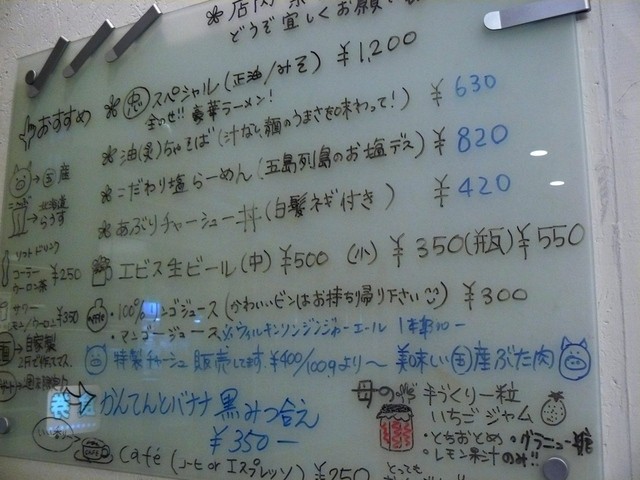 ❀ 店内
どうぞ宜しくお願い
おすすめ
❀ スペシャル(正油/みそ) ¥1,200
全のせ!! 豪華ラーメン!
❀ 油(炙)ちゃそば(汁なし麺のうまさを味わって!) ¥630
❀ こだわり塩らーめん(五島列島のお塩デス) ¥820
❀ あぶりチャーシュー丼(白髪ネギ付き) ¥420
→国産
北海道
→らうす
ソフトドリンク
コーラー
ウーロン茶 ¥250
エビス生ビール(中) ¥500 (小) ¥350(瓶)¥550
サワー
¥350
・100%リンゴジュース(かわいいビンはお持ち帰り下さい) ¥300
・マンゴージュース ※ウィルキンソンジンジャーエール
→自家製
特製チャーシュー販売してます。¥400/100gより〜 美味しい国産ぶた肉
かんてんとバナナ 黒みつ合え
¥350-
母の 手づくり一粒
いちごジャム
・とちおとめ・グラニュー糖
・レモン果汁のみ!!
Café (コーヒ or エスプレッソ) ¥250
とっても